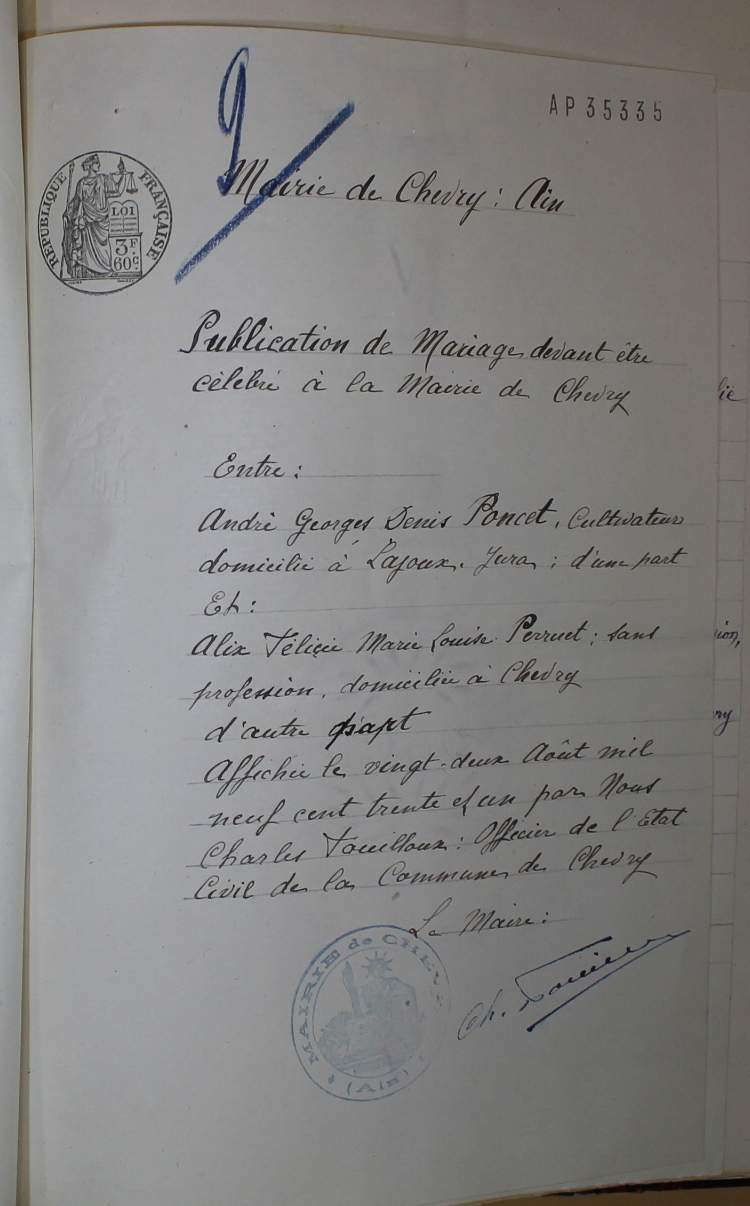 9
AP 35335
RÉPUBLIQUE FRANÇAISE
LOI
3F
60c.
Mairie de Chevry : Ain
Publication de Mariage devant être
célebré à la Mairie de Chevry
Entre :
André Georges Denis Poncet, Cultivateur
domicilié à Lajoux. Jura ; d'une part
Et :
Alix Félicie Marie Louise Perruet ; sans
profession, domiciliée à Chevry
d'autre part
Affichée le vingt-deux Août mil
neuf cent trente et un par Nous
Charles Touilloux : Officier de l'Etat
Civil de la Commune de Chevry
Le Maire :
MAIRIE de CHEV
(Ain)
Ch.
lié
ion,
ry